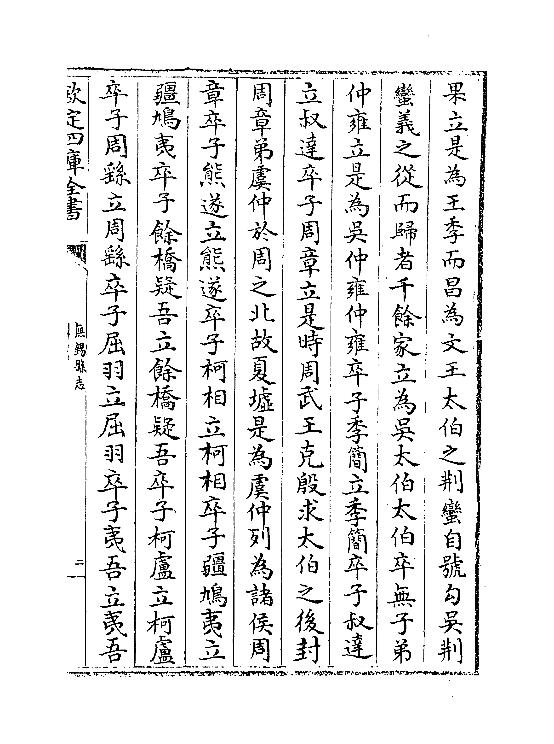 果立是為王季而昌為文王太伯之荆蠻自號勾吳荆
蠻義之從而歸者千餘家立為吳太伯太伯卒無子弟
仲雍立是為吳仲雍仲雍卒子季簡立季簡卒子叔達
立叔達卒子周章立是時周武王克殷求太伯之後封
周章弟虞仲於周之北故夏墟是為虞仲列為諸侯周
章卒子熊遂立熊遂卒子柯相立柯相卒子彊鳩夷立
彊鳩夷卒子餘橋疑吾立餘橋疑吾卒子柯盧立柯盧
卒子周繇立周繇卒子屈羽立屈羽卒子夷吾立夷吾
欽定四庫全書
無錫縣志
二